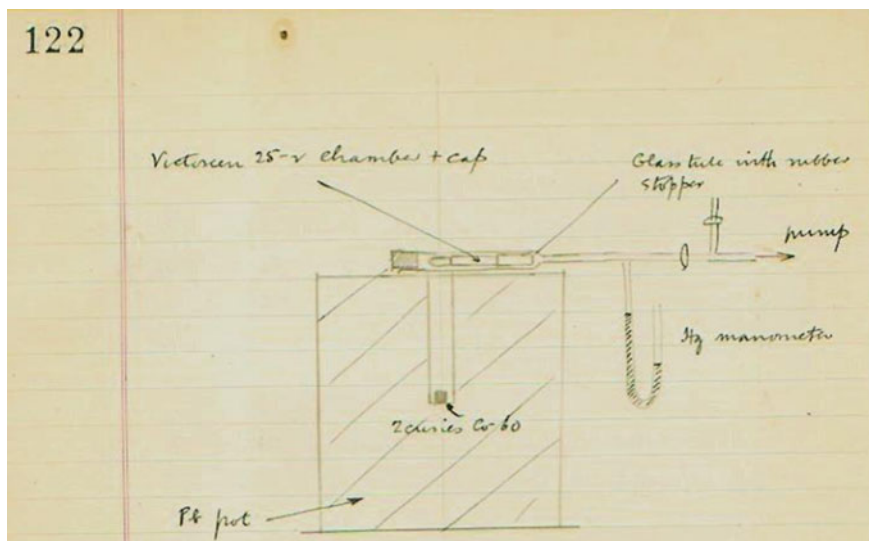 122
Victoreen 25-r chamber + cap
Glass tube with rubber
stopper
pump
Hg manometer
2 curies Co-60
Pb pot